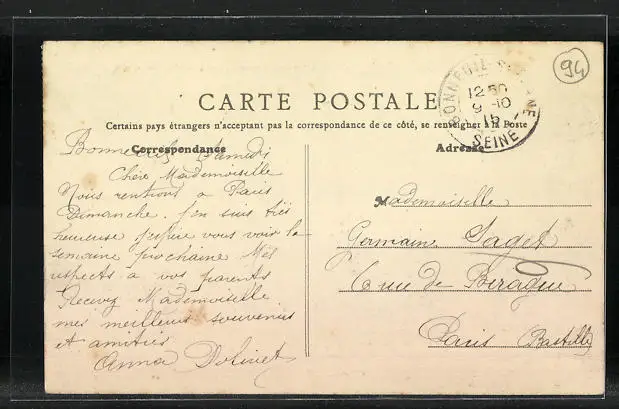 94
BONNEUIL-S-MARNE
12 50
9 -10
15
SEINE
CARTE POSTALE
Certains pays étrangers n'acceptant pas la correspondance de ce côté, se renseigner à la Poste
Correspondance
Adresse
Bonneuil Samedi
Chère Mademoiselle
Nous rentront a Paris
Dimanche. j'en suis très
heureuse j'espère vous voir la
semaine prochaine Mes
respects a vos parents
Recevez Mademoiselle
mes meilleurs souvenirs
et amitiés
Anna Dolivet
Mademoiselle
Germain Saget
6 rue de Biragu
Paris (Bastille)